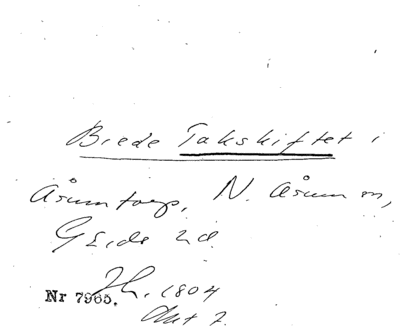 Brede Takskiftet i
Åsumtorp, N. Åsum sn,
Gärds hd.
Nr 7965. 1804
Akt 7.